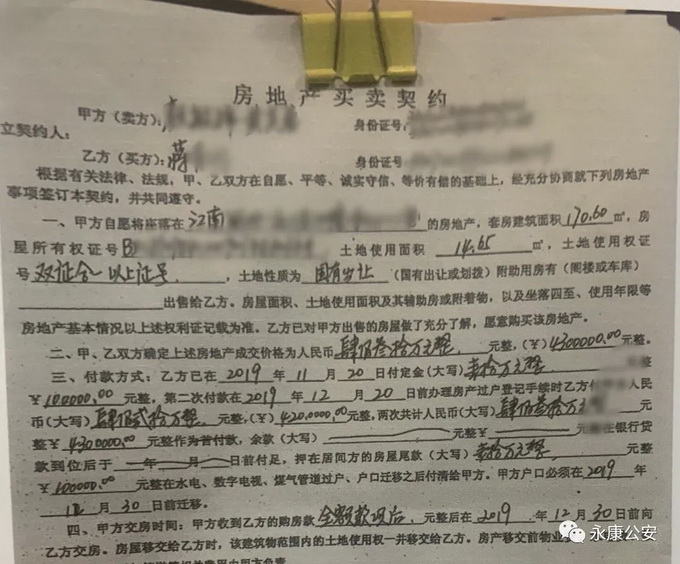 房地产买卖契约
甲方（卖方）：
身份证号：
立契约人：
乙方（买方）：蒋
身份证号：
根据有关法律、法规，甲、乙双方在自愿、平等、诚实守信、等价有偿的基础上，经充分协商就下列房地产
事项签订本契约，并共同遵守。
一、甲方自愿将座落在江南 的房地产，套房建筑面积170.60㎡，房
屋所有权证号B 土地使用面积 14.65 ㎡，土地使用权证
号双证合一以上证号，土地性质为国有出让（国有出让或划拨）附助用房有（阁楼或车库）
出售给乙方。房屋面积、土地使用面积及其辅助房或附着物，以及坐落四至、使用年限等
房地产基本情况以上述权利证记载为准。乙方已对甲方出售的房屋做了充分了解，愿意购买该房地产。
二、甲、乙双方确定上述房地产成交价格为人民币肆佰叁拾万元整，元整，(￥)4300000.00元整。
三、付款方式：乙方已在2019年11月20日付定金(大写)壹拾万元整 整
￥100000.00元整，第二次付款在2019年12月20日前办理房产过户登记手续时乙方 人民
币(大写)肆佰贰拾万整，元整，(￥)4200000.00元整，两次共计人民币(大写)肆佰叁拾万元 元
整￥4300000.00元整作为首付款，余款(大写) 元整￥ 在银行贷
款到位后于 年 月 日前付足，押在居间方的房屋尾款(大写)壹拾万元整，元整
￥100000.00元整在水电、数字电视、煤气管道过户、户口迁移之后付清给甲方。甲方户口必须在2019年
12月30日前迁移。
四、甲方交房时间：甲方收到乙方的购房款全额款项后，元整后在2019年12月30日前向
乙方交房。房屋移交给乙方时，该建筑物范围内的土地使用权一并移交给乙方。房产移交前物业
永康公安